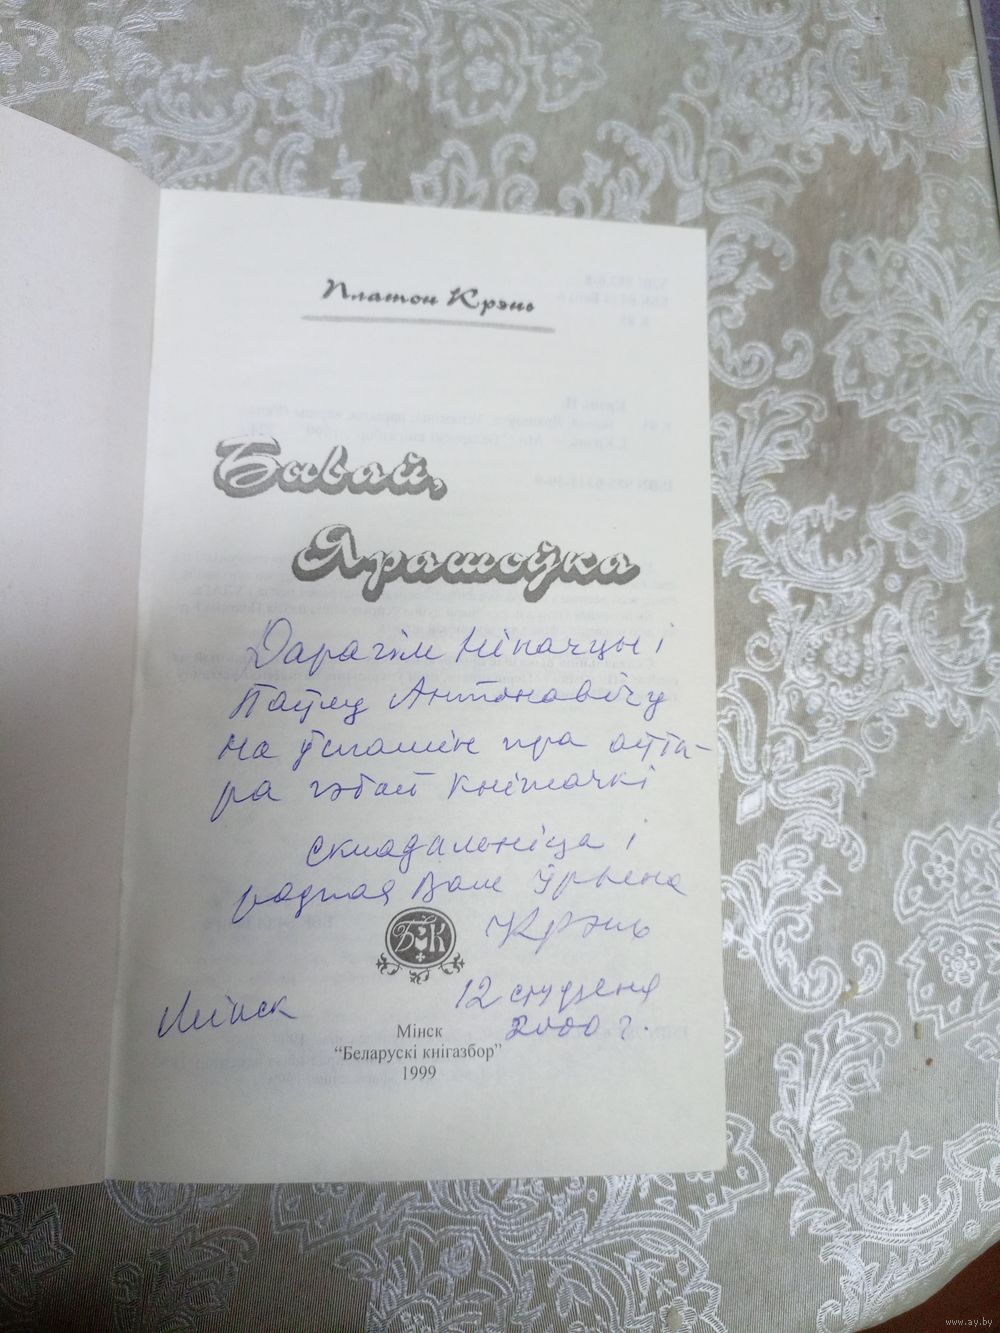 Платон Крэнь
Бывай,
Ярашоўка
Дарагім Ніначцы і
Паўлу Антонавічу
на ўспамін пра аўта-
ра гэтай кніжачкі
складальніца і
родная Вам Ір'іена
Крэнь
Мінск
12 студзеня
2000 г.
БК
Мінск
"Беларускі кнігазбор"
1999
www.ay.by